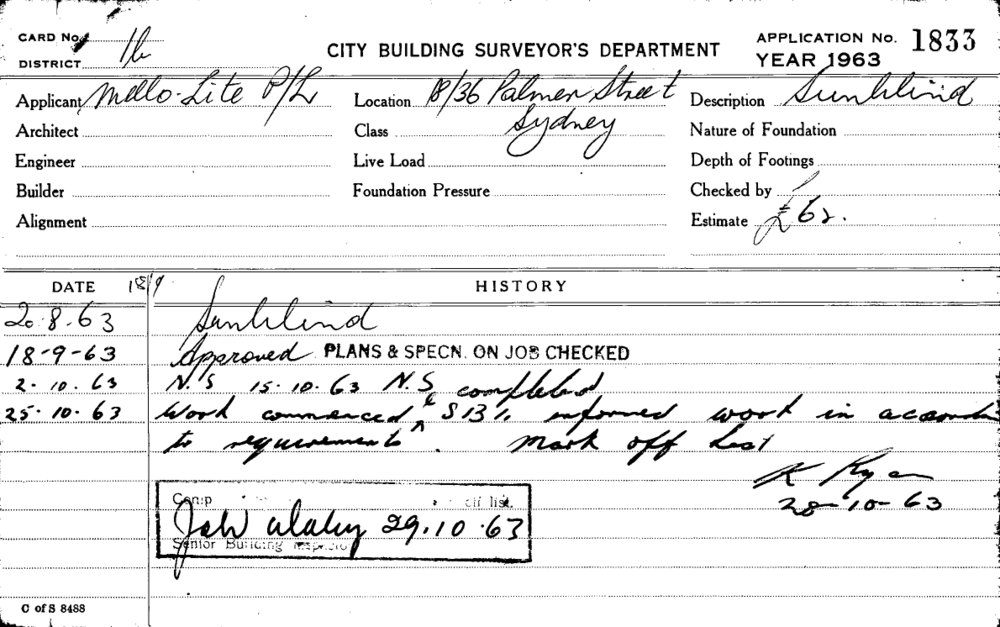 CARD No.
DISTRICT
CITY BUILDING SURVEYOR'S DEPARTMENT
APPLICATION No. 1833
YEAR 1963
Applicant Mello-Lite P/L
Location 18/36 Palmer Street
Sydney
Description Sunblind
Architect
Class
Nature of Foundation
Engineer
Live Load
Depth of Footings
Builder
Foundation Pressure
Checked by
Alignment
Estimate £62.
DATE 18/9 HISTORY
20.8.63 Sunblind
18-9-63 Approved PLANS & SPECN. ON JOB CHECKED
2.10.63 N.S 15.10.63 N.S
& completed
25.10.63 Work commenced informed work in
to requirements. Mark off list
K Ryan
28-10-63
Comp off list.
29.10.63
Senior Building Inspector
C of S 8488